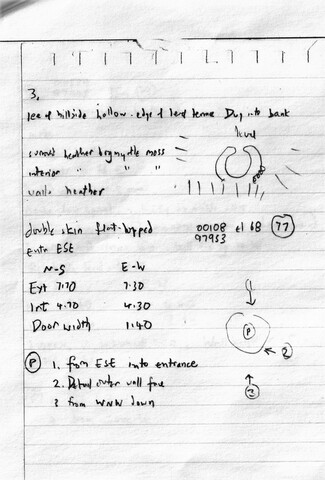 3.
lee of hillside hollow - edge of level terrace Dug into bank
level
surround heather bog myrtle moss
interior " " "
walls heather
double skin flat-topped 00108 el 68 77
97953
entr ESE
N-S E-W
Ext 7.70 7.30
Int 4.70 4.30
Door width 1.40
P
P 1. from ESE into entrance
2. Detail outer wall face
2
3 from WNW down
3